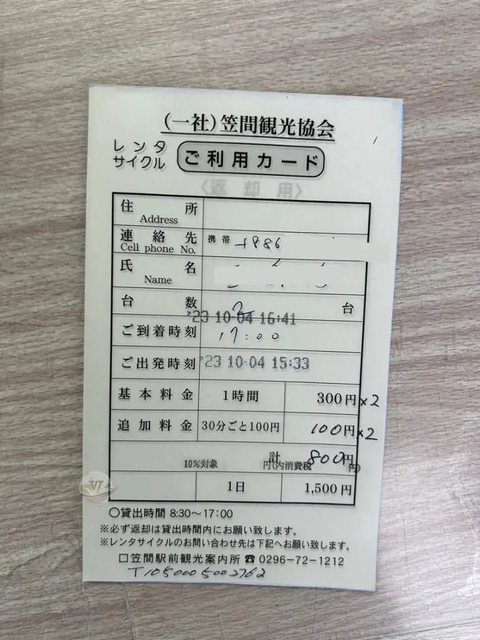 (一社)笠間観光協会
レンタサイクル ご利用カード
〈返却用〉
住所
Address
連絡先 携帯 +886
Cell phone No.
氏名
Name
台数 2 台
'23 10-04 16:41
ご到着時刻 17:00
ご出発時刻 '23 10-04 15:33
基本料金 1時間 300円×2
追加料金 30分ごと100円 100円×2
計 800円
10%対象 円(内消費税 円)
1日 1,500円
○貸出時間 8:30〜17:00
※必ず返却は貸出時間内にお願い致します。
※レンタサイクルのお問い合わせ先は下記へお願い致します。
□笠間駅前観光案内所 ☎0296-72-1212
T1050005002762